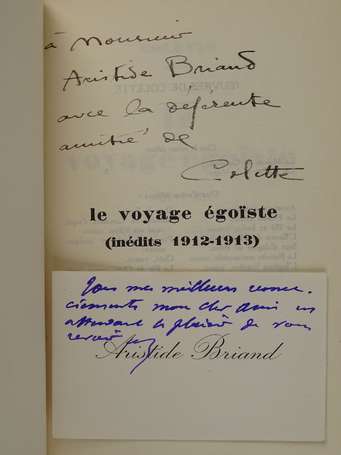 à Monsieur
Aristide Briand
avec la déférente
amitié de
Colette
le voyage égoïste
(inédits 1912-1913)
Tous mes meilleurs remer-
ciements mon cher ami en
attendant le plaisir de vous
revoir
Aristide Briand